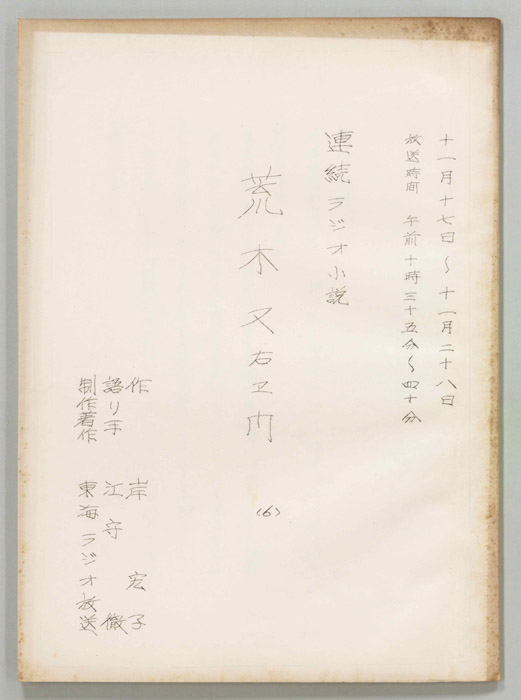 十一月十七日〜十一月二十八日
放送時間 午前十時三十五分〜四十分
連続ラジオ小説
荒木又右ヱ門
(6)
作 岸宏子
語り手 江守徹
制作著作 東海ラジオ放送